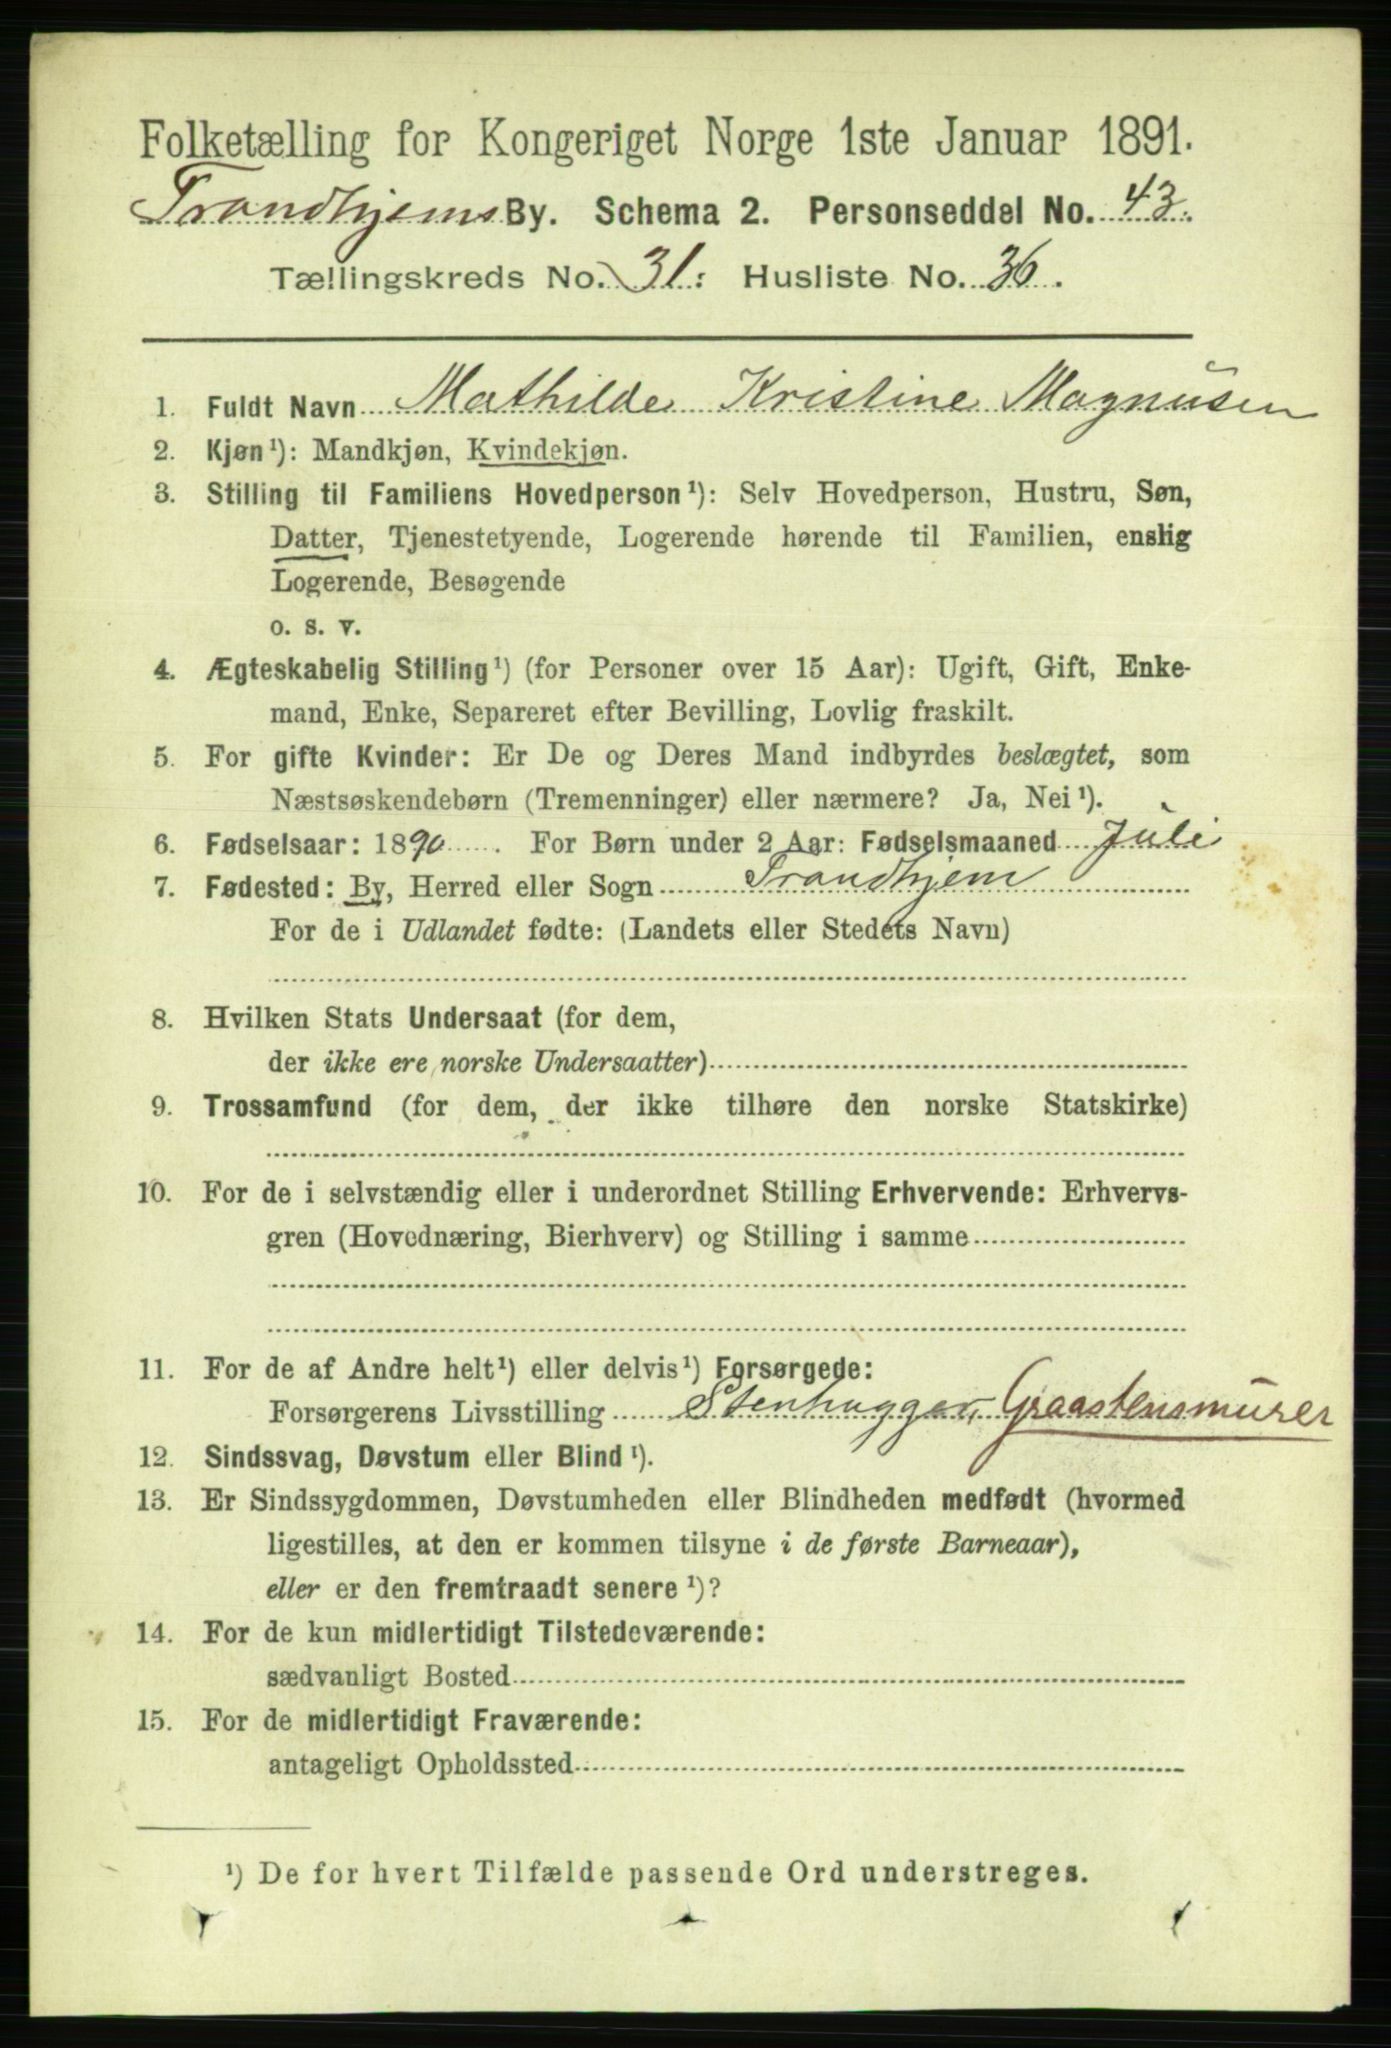 Folketælling for Kongeriget Norge 1ste Januar 1891.
Trondhjems By. Schema 2. Personseddel No. 43.
Tællingskreds No. 31. Husliste No. 36.
1. Fuldt Navn Mathilde Kristine Magnusen
2. Kjøn¹): Mandkjøn, Kvindekjøn.
3. Stilling til Familiens Hovedperson¹): Selv Hovedperson, Hustru, Søn,
Datter, Tjenestetyende, Logerende hørende til Familien, enslig
Logerende, Besøgende
o. s. v.
4. Ægteskabelig Stilling¹) (for Personer over 15 Aar): Ugift, Gift, Enke-
mand, Enke, Separeret efter Bevilling, Lovlig fraskilt.
5. For gifte Kvinder: Er De og Deres Mand indbyrdes beslægtet, som
Næstsøskendebørn (Tremenninger) eller nærmere? Ja, Nei¹).
6. Fødselsaar: 1890. For Børn under 2 Aar: Fødselsmaaned Juli
7. Fødested: By, Herred eller Sogn Trondhjem
For de i Udlandet fødte: (Landets eller Stedets Navn)
8. Hvilken Stats Undersaat (for dem,
der ikke ere norske Undersaatter)
9. Trossamfund (for dem, der ikke tilhøre den norske Statskirke)
10. For de i selvstændig eller i underordnet Stilling Erhvervende: Erhvervs-
gren (Hovednæring, Bierhverv) og Stilling i samme
11. For de af Andre helt¹) eller delvis¹) Forsørgede:
Forsørgerens Livsstilling Stenhugger, Graastensmurer
12. Sindssvag, Døvstum eller Blind¹).
13. Er Sindssygdommen, Døvstumheden eller Blindheden medfødt (hvormed
ligestilles, at den er kommen tilsyne i de første Barneaar),
eller er den fremtraadt senere¹)?
14. For de kun midlertidigt Tilstedeværende:
sædvanligt Bosted
15. For de midlertidigt Fraværende:
antageligt Opholdssted
¹) De for hvert Tilfælde passende Ord understreges.